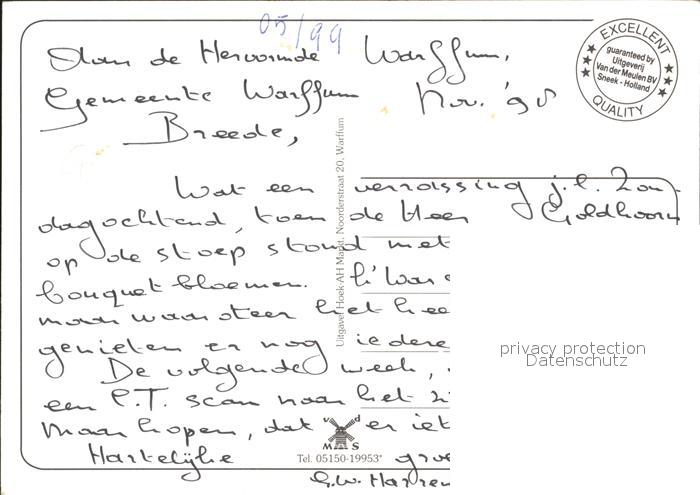 05/99
Aan de Hervormde Warffum,
Gemeente Warffum Nov. '98
Breede,
Wat een verrassing j.l. Zon-
dagochtend, toen de Heer Goldhoorn
op de stoep stond met
bouquet bloemen.
maar waardeer het
genieten er nog iedere
De volgende week,
een C.T. scan naar het
Maar hopen, dat er iet
Hartelijke groe
G.W. Harren
Uitgave Hoek-AH Markt, Noorderstraat 20, Warffum
vd
M S
Tel. 05150-19953*
EXCELLENT
guaranteed by
Uitgeverij
Van der Meulen BV
Sneek - Holland
QUALITY
privacy protection
Datenschutz